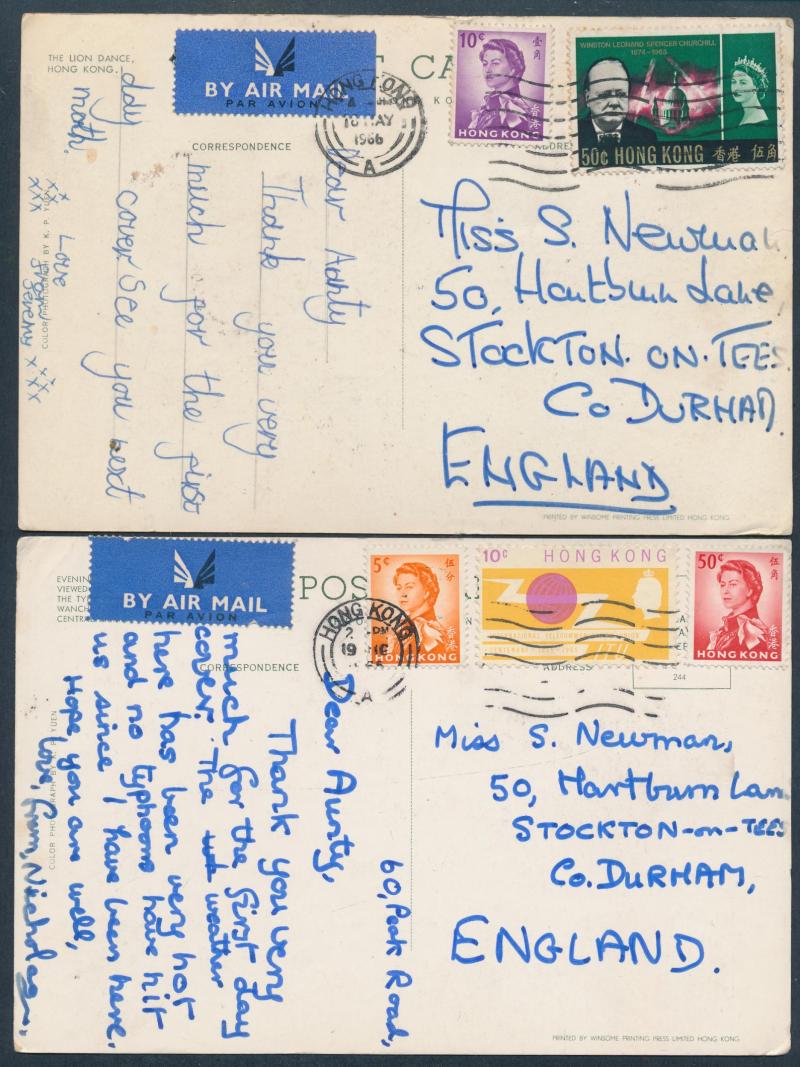 THE LION DANCE,
HONG KONG.
BY AIR MAIL
PAR AVION
CA
HONG KONG
4 - PM
18 MAY
1966
A
10¢
壹角
香港
HONG KONG
WINSTON LEONARD SPENCER CHURCHILL
1874-1965
50¢ HONG KONG 香港 伍角
CORRESPONDENCE
ADDRE
Dear Aunty
Thank you very
much for the first
day cover See you next
moth.
Love
Jeremy xxx
xxx
COLOR PHOTOGRAPH BY K. P. YUEN
Miss S. Newman
50, Hartburn Lane
STOCKTON. ON. TEES
Co DURHAM
ENGLAND
PRINTED BY WINSOME PRINTING PRESS LIMITED HONG KONG
EVENING
VIEWED
THE TY
WANCH
CENTRAL
BY AIR MAIL
PAR AVION
POS
HONG KONG
2 - PM
19
A
5¢
伍分
香港
HONG KONG
10¢ HONG KONG
INTERNATIONAL TELECOMMUNICATION UNION
CENTENARY 1865-1965
ITU
50¢
伍角
香港
HONG KONG
CORRESPONDENCE
ADDRESS
244
60, Peak Road,
Dear Aunty,
Thank you very
much for the first day
cover. The weather
here has been very hot
and no typhoons have hit
us since I have been here.
Hope you are well,
love, from, Nicholas.
COLOR PHOTOGRAPH BY K. P. YUEN
Miss S. Newman,
50, Hartburn Lan
STOCKTON-on-TEES
Co. DURHAM,
ENGLAND.
PRINTED BY WINSOME PRINTING PRESS LIMITED HONG KONG